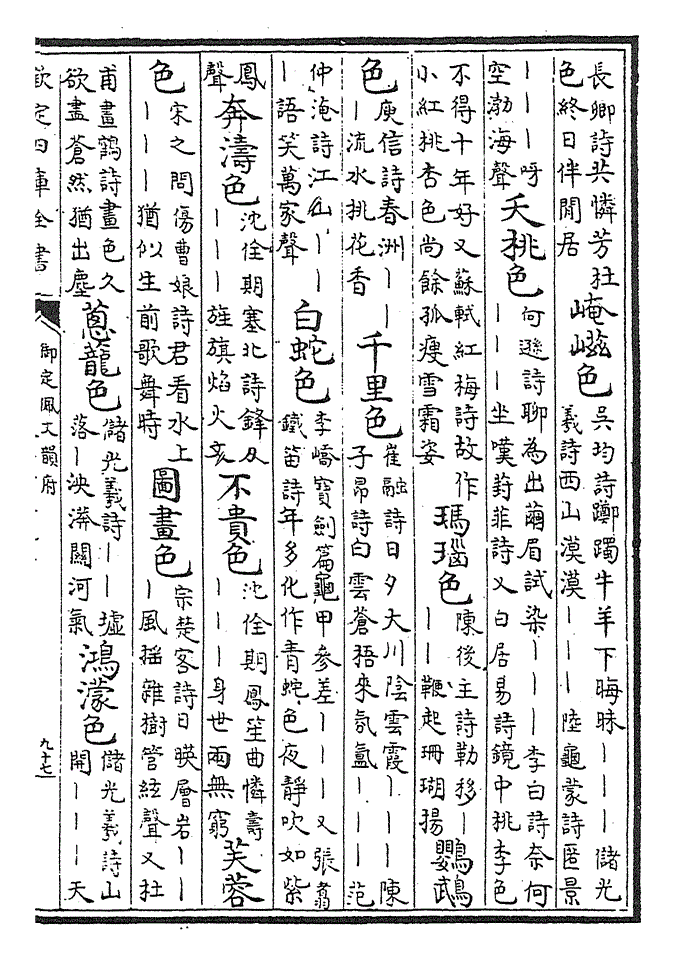 長卿詩共憐芳杜
色終日伴閒居
崦嵫色
吳均詩躑躅牛羊下晦昧｜｜｜儲光
羲詩西山漠漠｜｜｜陸龜蒙詩匿景
｜｜｜呀
空渤海聲
夭桃色
何遜詩聊為出繭眉試染｜｜｜李白詩奈何
｜｜｜坐嘆葑菲詩又白居易詩鏡中桃李色
不得十年好又蘇軾紅梅詩故作
小紅桃杏色尚餘孤瘦雪霜姿
瑪瑙色
陳後主詩勒移｜
｜｜鞭起珊瑚揚
鸚鵡
色
庾信詩春洲｜｜
｜流水桃花香
千里色
崔融詩日夕大川陰雲霞｜｜｜陳
子昂詩白雲蒼梧來氛氳｜｜｜范
仲淹詩江山｜｜
｜語笑萬家聲
白蛇色
李嶠寶劍篇龜甲參差｜｜｜又張翥
鐵笛詩年多化作青蛇色夜靜吹如紫
鳳
聲
奔濤色
沈佺期塞北詩鋒刄
｜｜｜旌旗焰火亥
不貴色
沈佺期鳳笙曲憐壽
｜｜｜身世兩無窮
芙蓉
色
宋之問傷曹娘詩君看水上
｜｜｜猶似生前歌舞時
圖畫色
宗楚客詩日暎層岩｜｜
｜風搖雜樹管絃聲又杜
甫畫鶴詩畫色久
欲盡蒼然猶出塵
蔥蘢色
儲光羲詩｜｜墟
落｜泱漭關河氣
鴻濛色
儲光羲詩山
開｜｜｜天
欽定四庫全書
御定佩文韻府
九十七